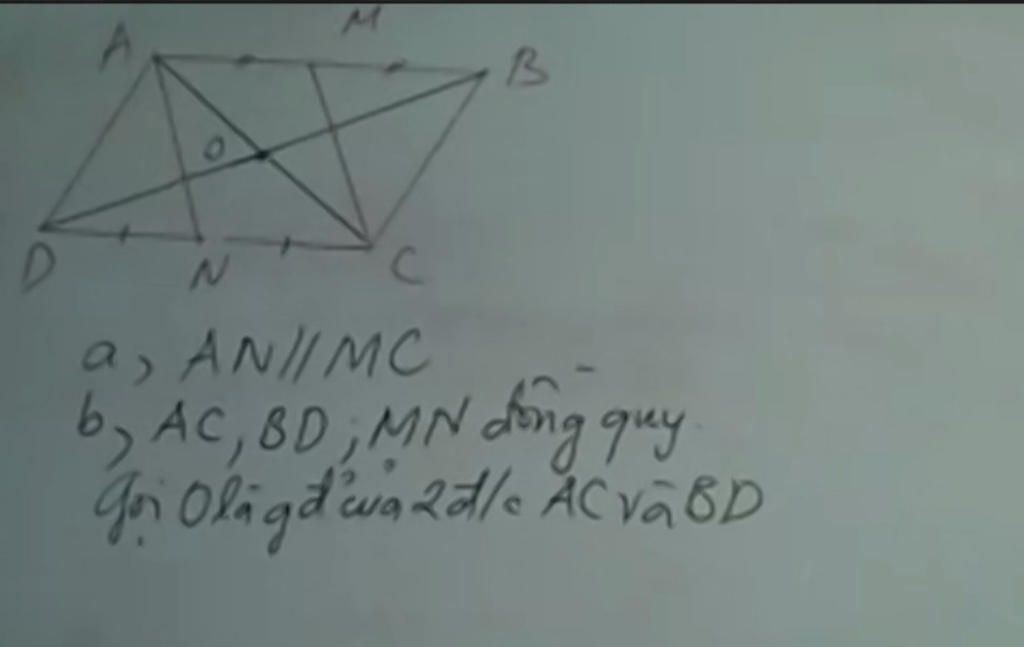 M
A
B
O
D
N
C
a, AN//MC
b, AC, BD; MN đồng quy
Gọi O là gđ của 2 đ/c AC và BD